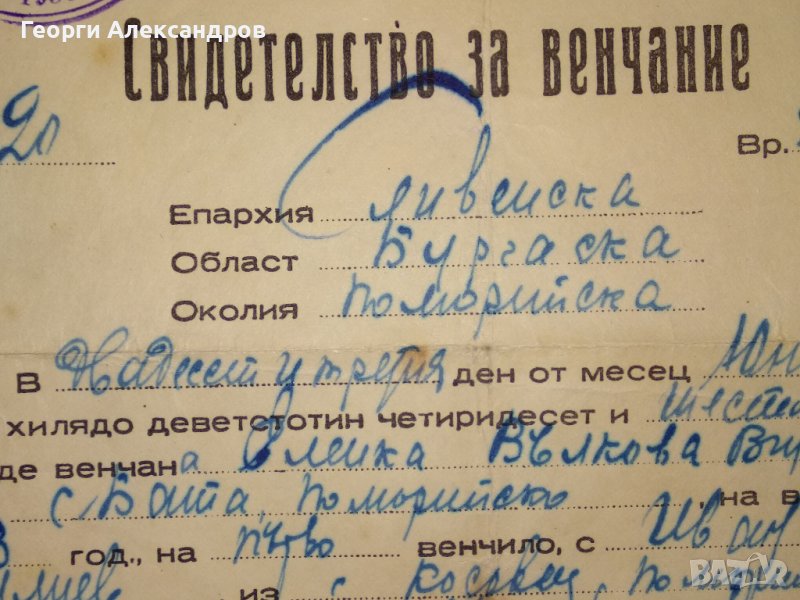 Георги Александров
Свидетелство за венчание
20 Вр.
Епархия Сливенска
Област Бургаска
Околия Поморийска
В Двадесет и третия ден от месец Юни
хилядо деветстотин четиридесет и шеста
де венчана Еленка Вълкова
с. Бата, Поморийско на в
год., на първо венчило, с Иван
из с. Косовец, Помори
BAZAR